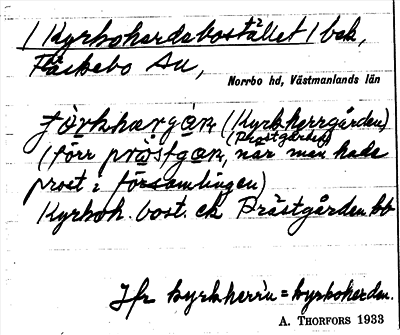 / Kyrkoherdebostället / bek,
Fläckebo sn,
Norrbo hd, Västmanlands län
(Kyrkherrgården)
(Prostgården)
(förr pròstgan, när man hade
prost i församlingen)
Kyrkoh. bost. ek Prästgården bb
Jfr kyrkherrn = kyrkoherden.
A. THORFORS 1933